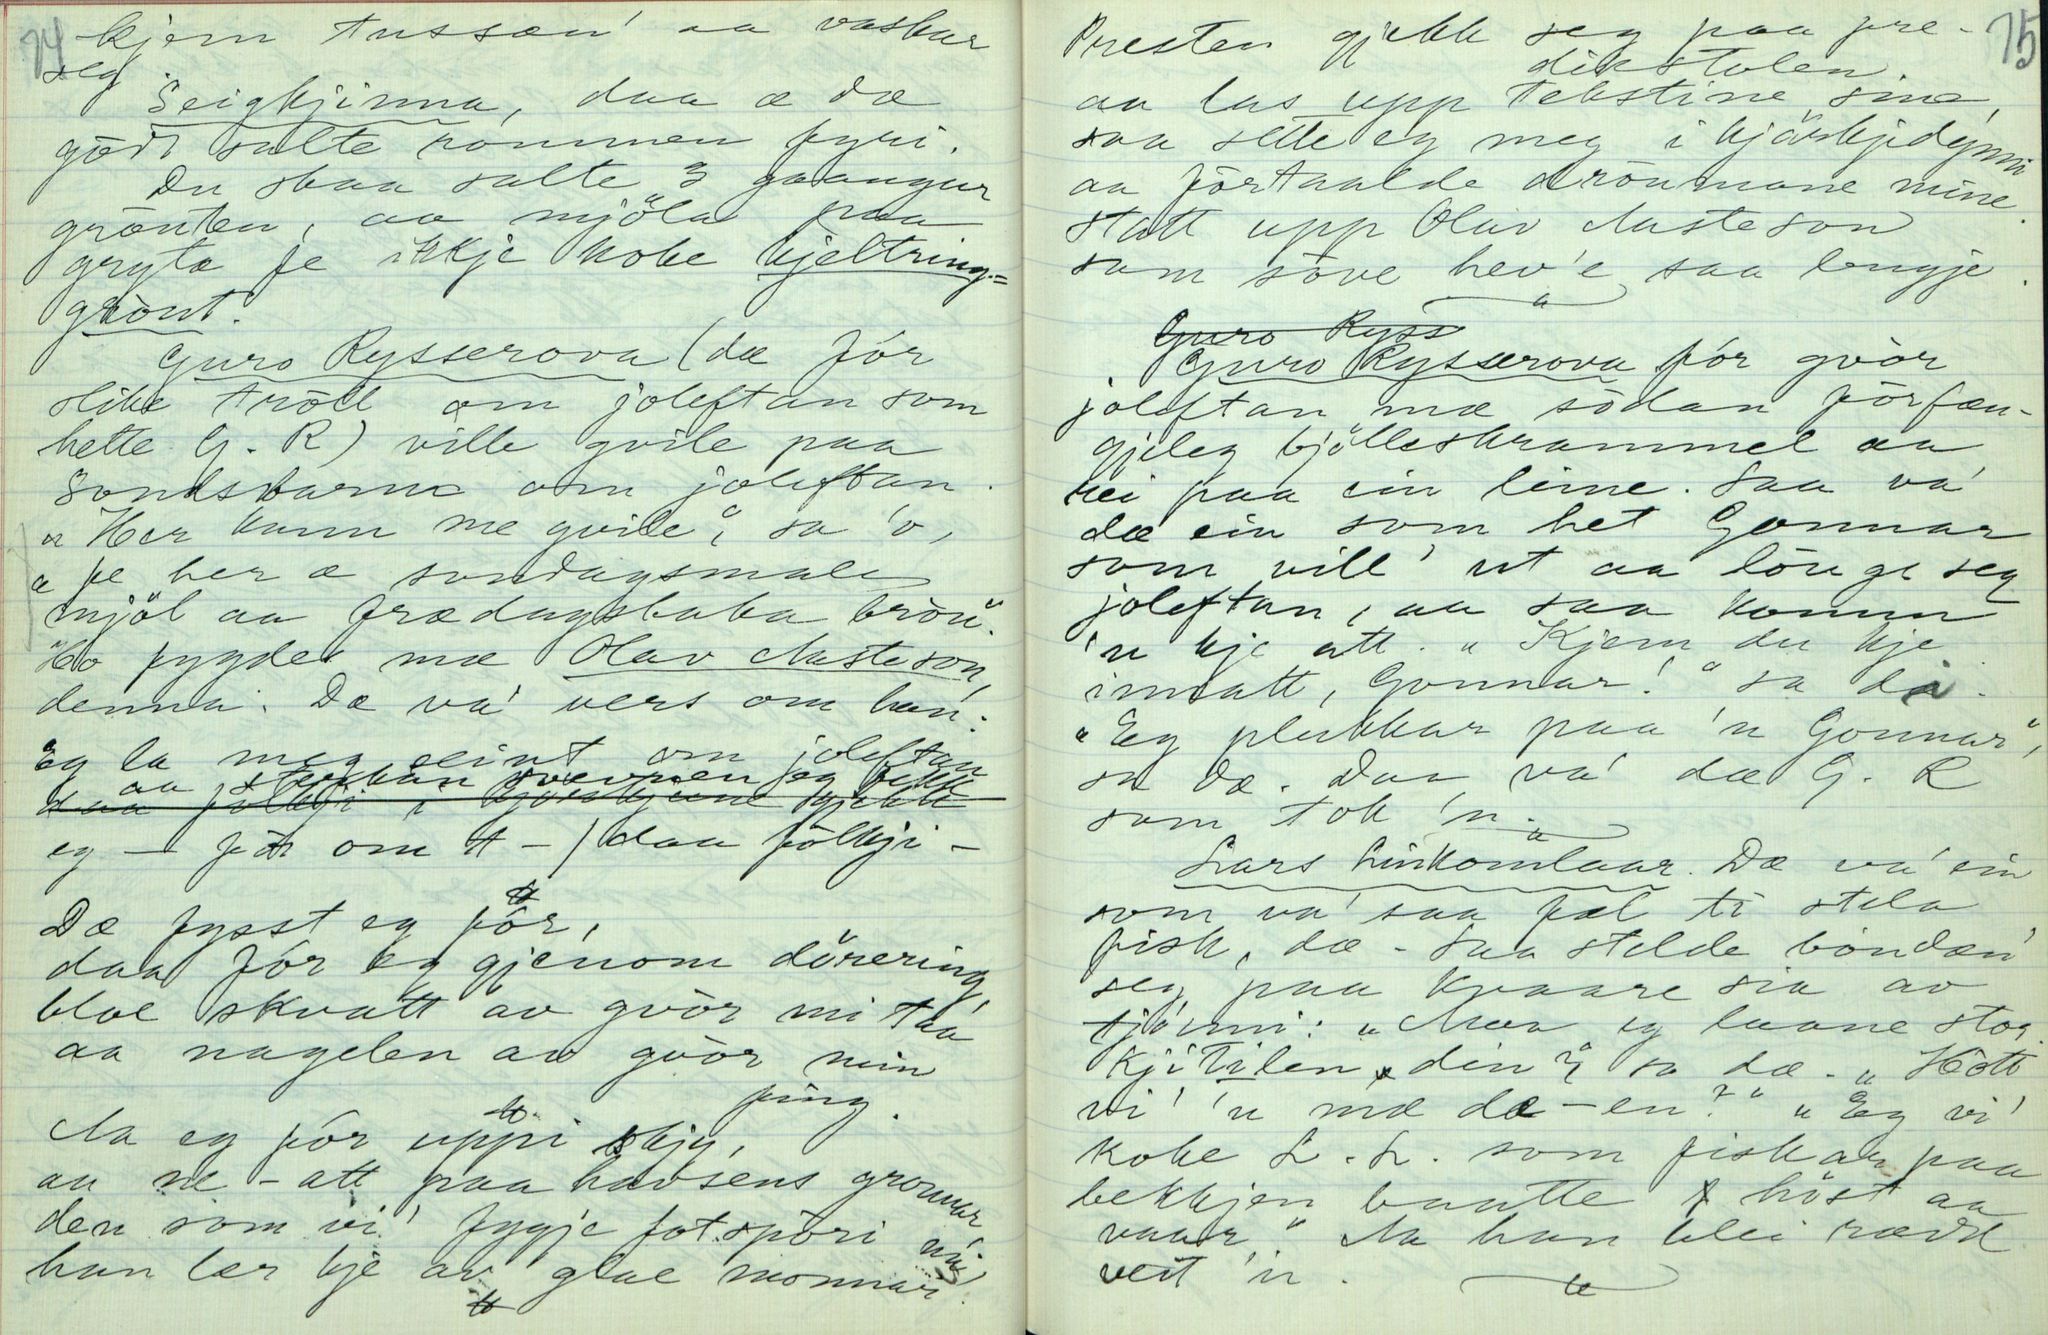 74
kjem tussæn' aa vaskar
seg.
Seigkjinna, daa æ dæ
gödt salte rommen fyri.
Du skaa salte 3 gaangur
grauten, aa mjöla paa
gryta fe ikkje koke kjeltring=
graut.
Guro Rysserova (dæ för
slike tröll om joleftan som
hette G. R) ville gvile paa
om joleftan.
"Her kunn me gvile", sa 'o,
"fe her æ sondagsmale
mjöl aa frædagsbaka bröu".
Ho fygde mæ Olav Aasteson,
denna. Dæ va' vers om han:
Eg la meg seint om joleftan
aa sterkan svevnen eg fekk
daa fölkji i kjörkjune gjekk
eg — för om A —) daa fölkji —
Dæ fysst eg för,
daa för eg gjenom dörering,
bloe skvatt av gvör mi taa
aa nagelen av gvör min
fing.
Aa eg för uppi skjy,
aa ne-att paa havsens gronnar
den som vi' fygje fotspöri mi
han lær kje av glae monnar.
75
Presten gjekk seg paa pre-
dikstolen
aa las upp tekstine sine,
saa sette eg meg i kjörkjedynni
aa förtaalde dröumane mine.
Statt upp Olav Aasteson
som söve hev'e saa lengje.
Guro Ryss
Guro Rysserova för gvör
joleftan mæ södan förfæn-
gjeleg bjölleskrammel aa
rei paa ein leine. Saa va'
dæ ein som het Gonnar
som vill' ut aa löuge seg
joleftan, aa saa komm
'n kje att. "Kjem du kje
innatt, Gonnar!" sa di.
"Eg plukkar paa 'n Gonnar",
sa dæ. Daa va' dæ G. R
som tok 'n.
Lars Linkomlaar. Dæ va' ein
som va' saa fæl ti stela
fisk, dæ - Saa stelde bonden
seg paa kvaare sia av
tjönni: "Maa eg laane stor-
kjitilen din"? sa dæ. "Hött
vi' 'n mæ dæ-en?" "Eg vi'
koke L. L. som fiskar paa
bekkjen baatte höst aa
vaar" Aa han blei rædd
veit 'n.